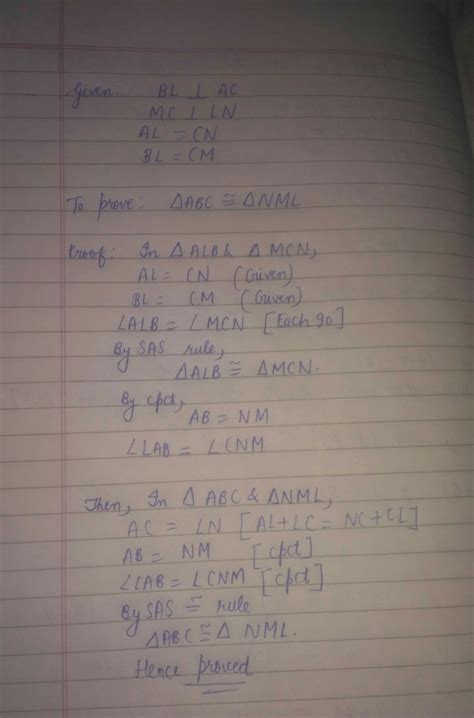 Given: BL ⊥ AC
MC ⊥ LN
AL = CN
BL = CM
To prove: ΔABC ≅ ΔNML
Proof: In Δ ALB & Δ MCN,
AL = CN (Given)
BL = CM (Given)
∠ALB = ∠MCN [Each 90°]
By SAS rule,
ΔALB ≅ ΔMCN.
By cpct,
AB = NM
∠LAB = ∠CNM
Then, In Δ ABC & ΔNML,
AC = LN [AL+LC = NC+CL]
AB = NM [cpct]
∠LAB = ∠CNM [cpct]
By SAS ≅ rule
ΔABC ≅ Δ NML.
Hence proved